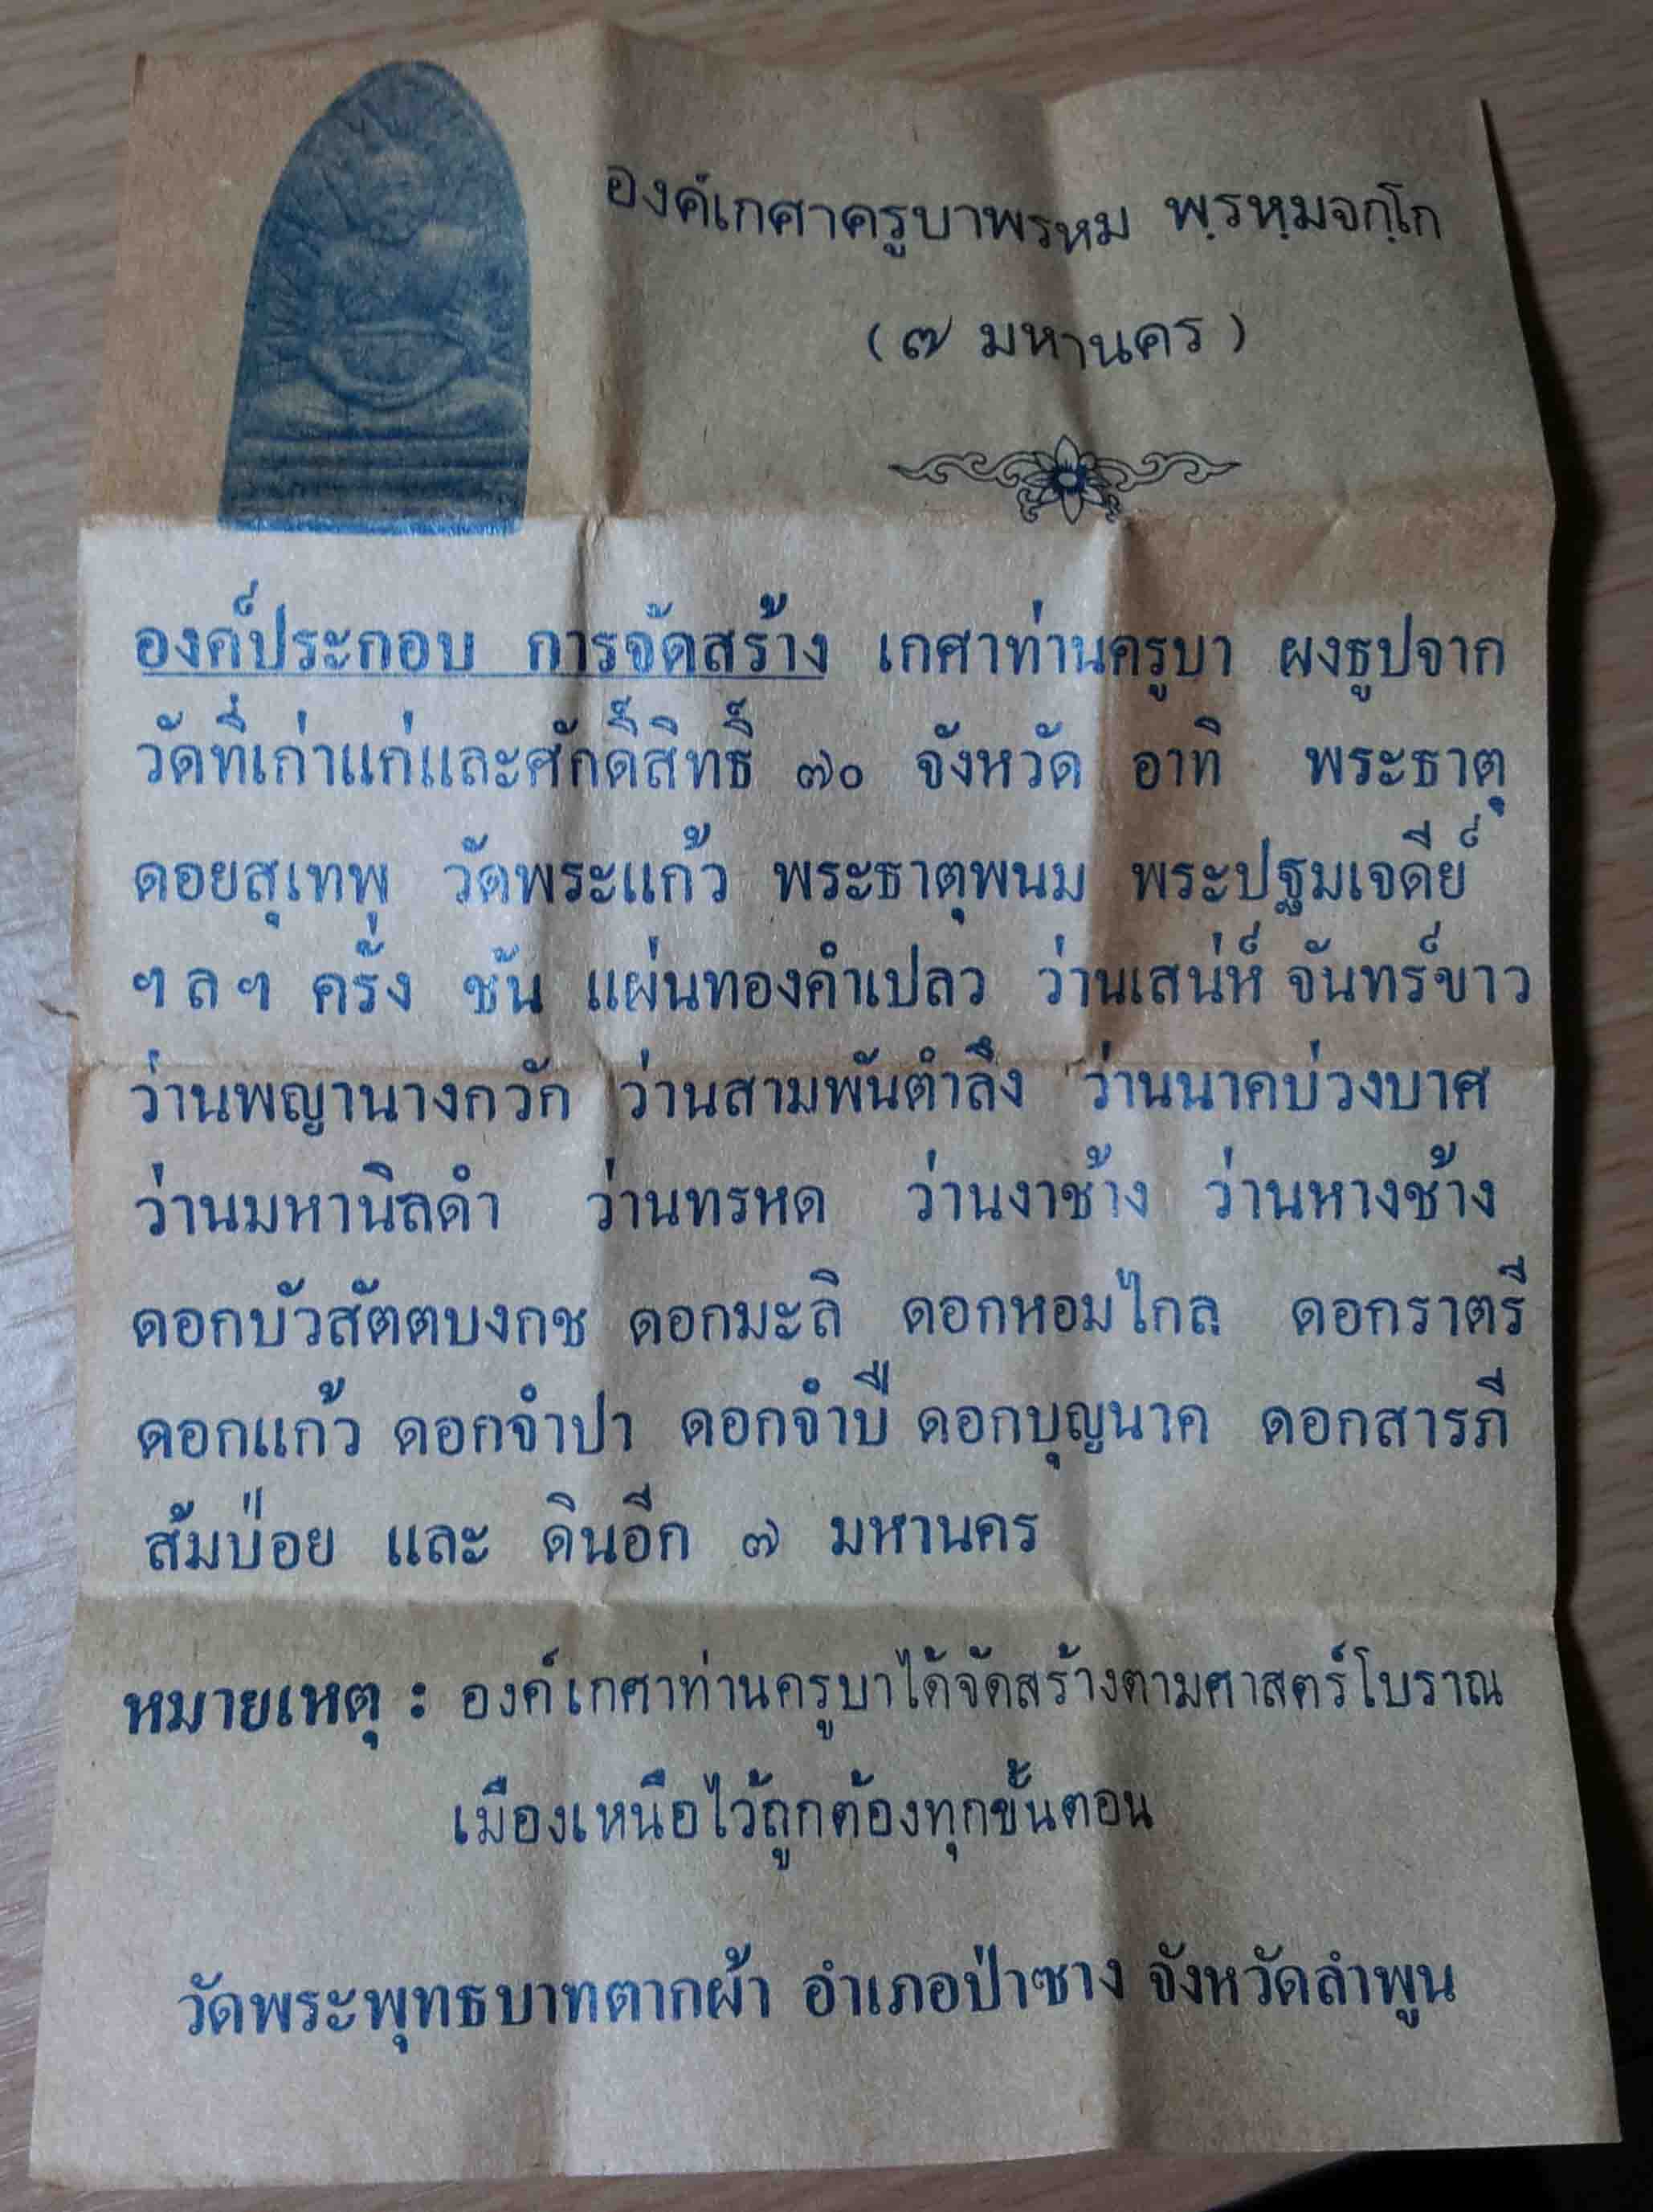 องค์เกศาครูบาพรหม พฺรหฺมจกฺโก
(๗ มหานคร)
องค์ประกอบ การจัดสร้าง เกศาท่านครูบา ผงธูปจาก
วัดที่เก่าแก่และศักดิ์สิทธิ์ ๗๐ จังหวัด อาทิ พระธาตุ
ดอยสุเทพ วัดพระแก้ว พระธาตุพนม พระปฐมเจดีย์
ฯลฯ ครั่ง ชัน แผ่นทองคำเปลว ว่านเสน่ห์ จันทร์ขาว
ว่านพญานางกวัก ว่านสามพันตำลึง ว่านนาคบ่วงบาศ
ว่านมหานิลดำ ว่านทรหด ว่านงาช้าง ว่านหางช้าง
ดอกบัวสัตตบงกช ดอกมะลิ ดอกหอมไกล ดอกราตรี
ดอกแก้ว ดอกจำปา ดอกจำปี ดอกบุญนาค ดอกสารภี
ส้มป่อย และ ดินอีก ๗ มหานคร
หมายเหตุ : องค์เกศาท่านครูบาได้จัดสร้างตามศาสตร์โบราณ
เมืองเหนือไว้ถูกต้องทุกขั้นตอน
วัดพระพุทธบาทตากผ้า อำเภอป่าซาง จังหวัดลำพูน